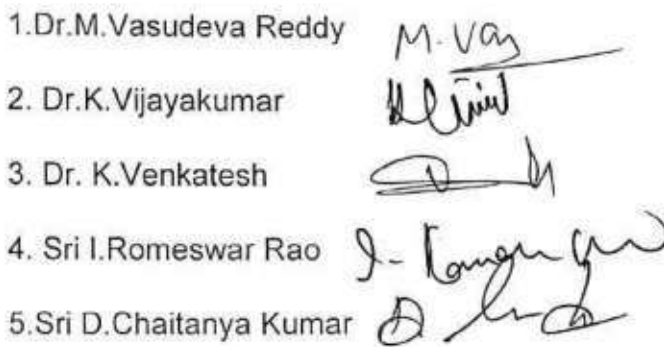 1.Dr.M.Vasudeva Reddy M.Vas
2. Dr.K.Vijayakumar
3. Dr. K.Venkatesh
4. Sri I.Romeswar Rao
5.Sri D.Chaitanya Kumar